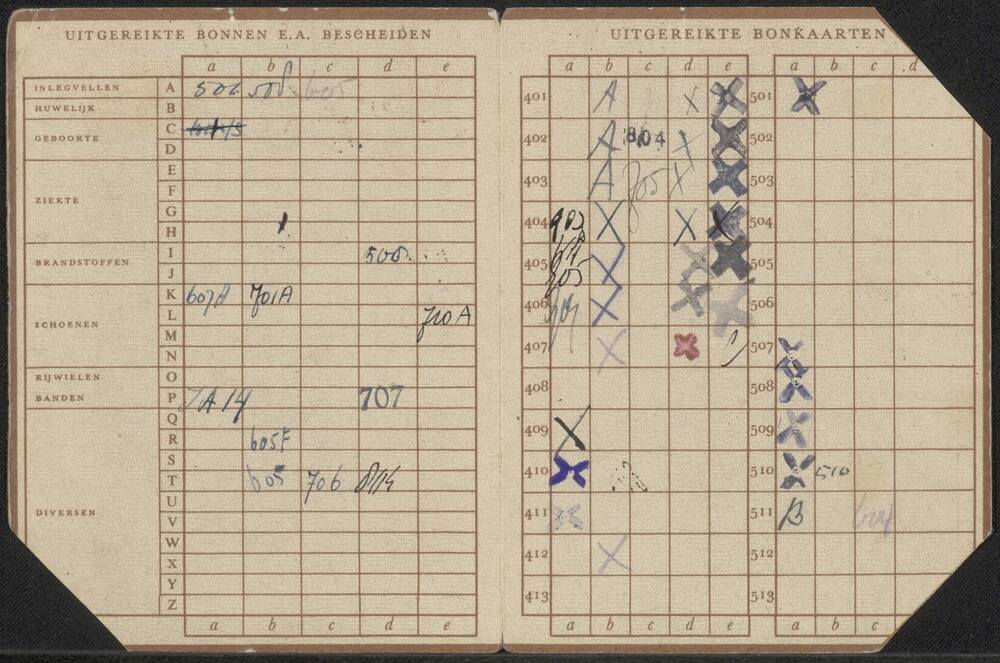 UITGEREIKTE BONNEN E.A. BESCHEIDEN
a b c d e
INLEGVELLEN A 506 508 605
HUWELIJK B
C
GEBOORTE
D
E
F
ZIEKTE
G
H
I 508
BRANDSTOFFEN
J
K 607A 701A
L 710A
SCHOENEN
M
N
RIJWIELEN O
BANDEN P JA14 707
Q
R 605F
S
T 605 706
U
DIVERSEN
V
W
X
Y
Z
a b c d e
UITGEREIKTE BONKAARTEN
a b c d e a b c d
401 A X X 501 X
402 A 804 X X 502
403 A 705 X X 503
404 X X X 504
405 705 X X X 505
406 X X X 506
407 X X 507 X
408 508 X
409 X 509 X
410 X 510 X 510
411 511 B
412 X 512
413 513
a b c d e a b c